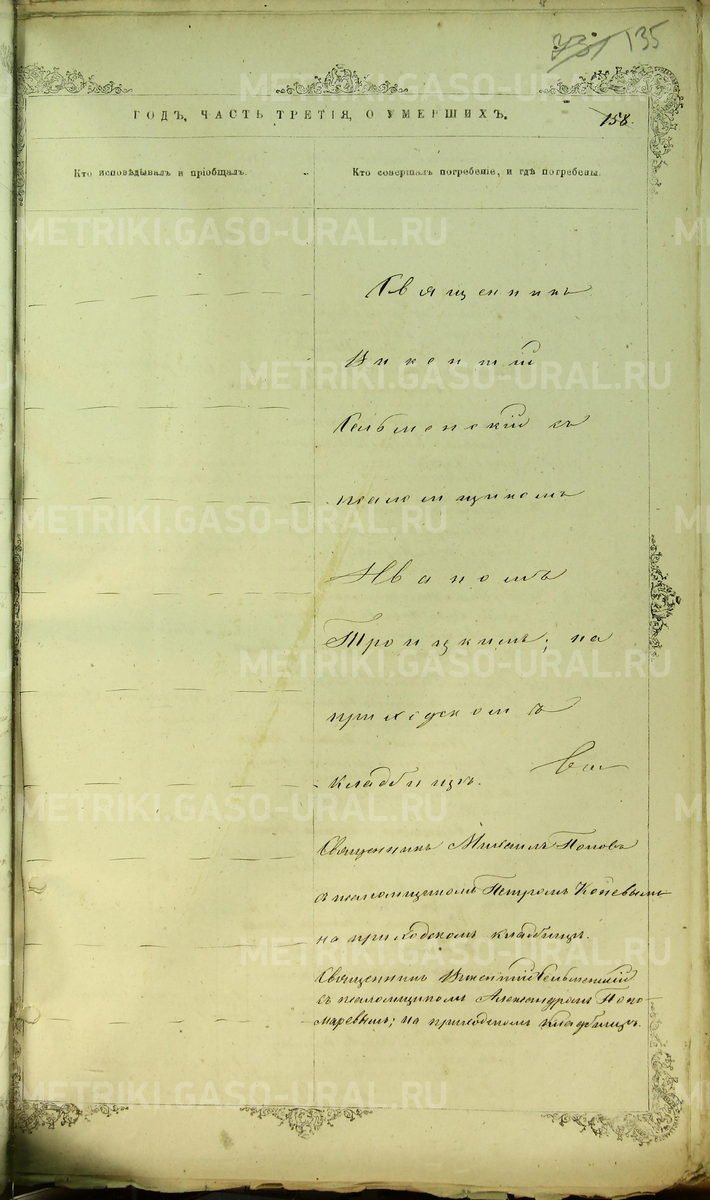 135
ГОДЪ, ЧАСТЬ ТРЕТІЯ, О УМЕРШИХЪ.
158.
Кто исповѣдывалъ и пріобщалъ.
Кто совершалъ погребеніе, и гдѣ погребены.
Священникъ
Викентій
Сельменскій съ
псаломщикомъ
Иваномъ
Троицкимъ; на
приходскомъ
кладбищѣ.
Священникъ Михаилъ Поповъ
съ псаломщикомъ Петромъ
на приходскомъ кладбищѣ.
Священникъ Викентій Сельменскій
съ псаломщикомъ Александромъ Поно-
маревымъ; на приходскомъ кладбищѣ.
METRIKI.GASO-URAL.RU